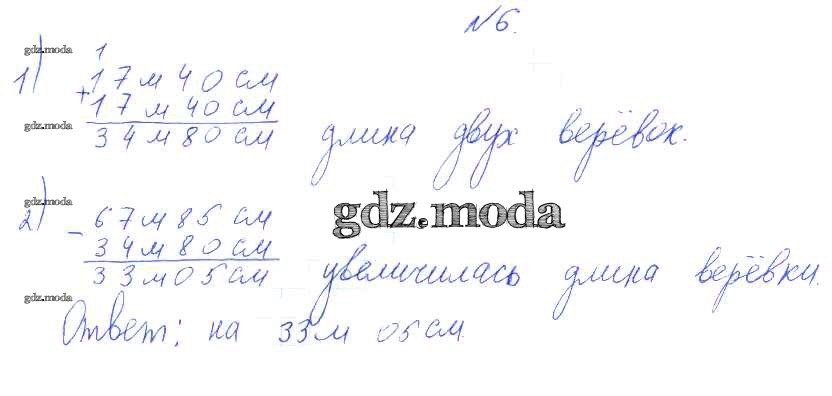 №6.
gdz.moda
1) 1
17м 40см
+17м 40см
gdz.moda
34м80см длина двух верёвок.
gdz.moda
2) 67м85см
gdz.moda
- 34м80см
33м05см увеличилась длина верёвки.
gdz.moda
Ответ: на 33м 05см.